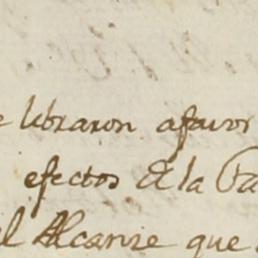 e libraron afavor
efectos de la Ca
el Alcanze que